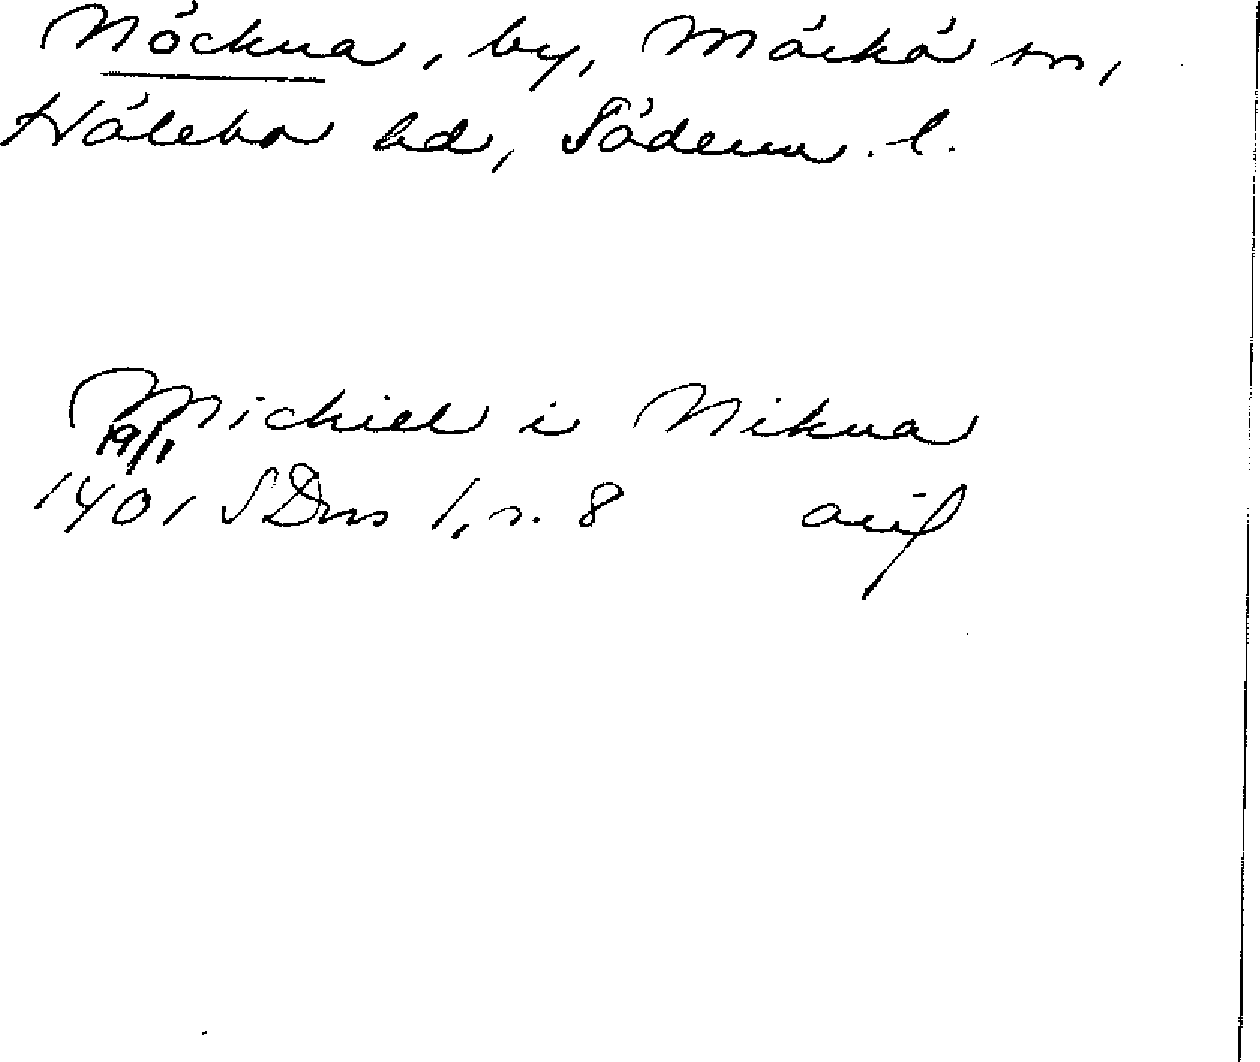 Nöckna, by, Mörkö sn,
Hölebo hd, Söderm. l.
Mickiel i Nikna
19/1
1401 SDns 1, s. 8 avif